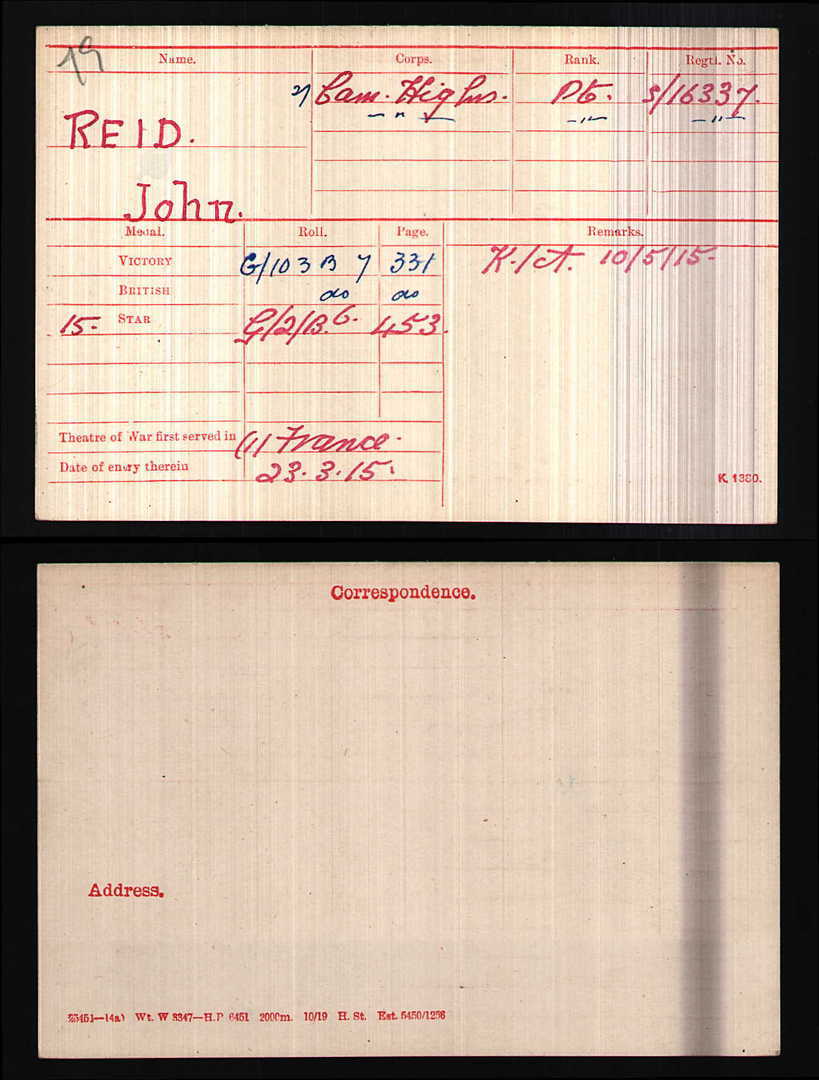 19
Name. Corps. Rank. Regtl. No.
2/ Cam. Highrs. Pte. S/16337.
REID. — " — — " — — " —
John.
Medal. Roll. Page. Remarks.
VICTORY G/103 B 7 331 K./A. 10/5/15-
BRITISH do do
15- STAR G/2/B.6. 453.
Theatre of War first served in (1) France.
Date of entry therein 23.3.15.
K. 1380.
Correspondence.
Address.
Wt. W 3347—H.P 6451 2000m. 10/19 H. St. Est. 5450/1256